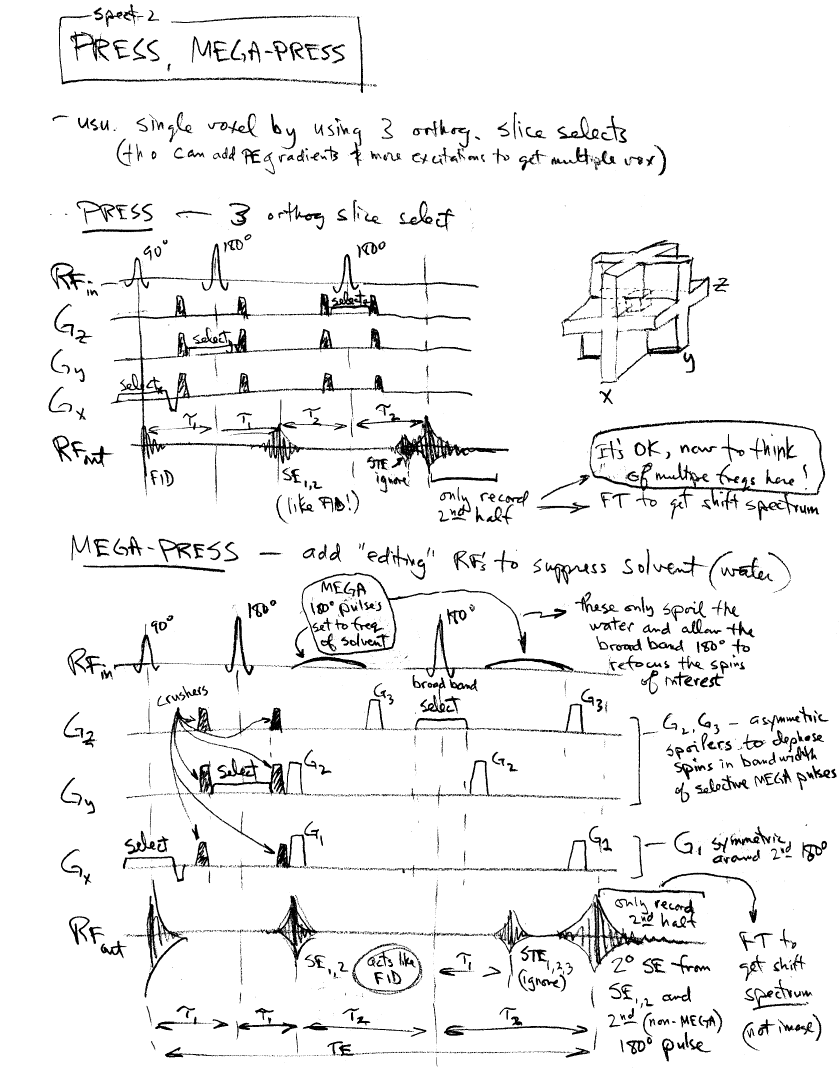 spect-2
PRESS, MEGA-PRESS
- usu. single voxel by using 3 orthog. slice selects
(tho can add PE gradients & more excitations to get multiple vox)
PRESS — 3 orthog slice select
90° 180° 180°
RFin
select
Gz
select
Gy
select
Gx
z
y
x
T1 T1 T2 T2
RFout
FID
SE1,2
(like FID!)
STE
ignore
only record
2nd half
It's OK, now to think
of multiple freqs here!
FT to get shift spectrum
MEGA-PRESS — add "editing" RF's to suppress solvent (water)
MEGA
180° pulses
set to freq
of solvent
90° 180° 180°
RFin
these only spoil the
water and allow the
broad band 180° to
refocus the spins
of interest
broad band
select
crushers
G3 G3
Gz
G2, G3 - asymmetric
spoilers to dephase
spins in bandwidth
of selective MEGA pulses
select
G2 G2
Gy
select
G1 G1
Gx
G1 symmetric
around 2nd 180°
RFout
only record
2nd half
SE1,2
acts like
FID
T1
STE1,2,3
(ignore)
2° SE from
SE1,2 and
2nd (non-MEGA)
180° pulse
FT to
get shift
spectrum
(not image)
T1 T1 T2 T2
TE